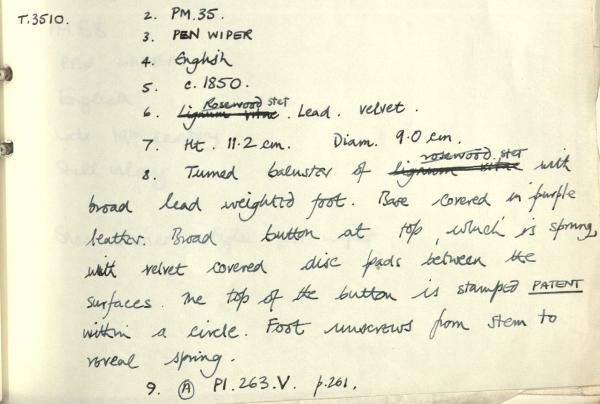 T.3510. 2. PM.35.
3. PEN WIPER
4. English
5. c.1850.
6. Lignum vitae Rosewood stet. Lead. velvet.
7. Ht. 11.2 cm. Diam. 9.0 cm.
8. Turned baluster of lignum vitae rosewood stet with
broad lead weighted foot. Base covered in purple
leather. Broad button at top, which is sprung,
with velvet covered disc pads between the
surfaces. The top of the button is stamped PATENT
within a circle. Foot unscrews from stem to
reveal spring.
9. A Pl.263.V. p.261.